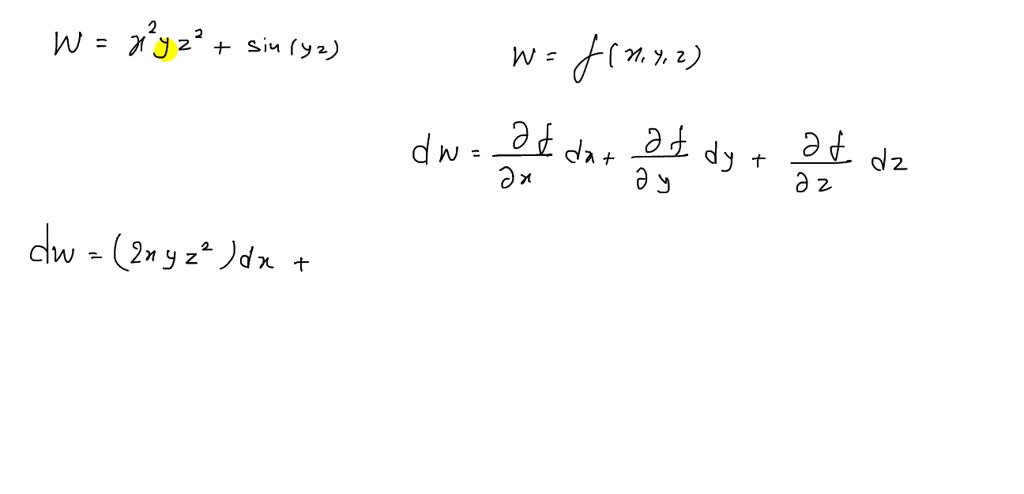 W = x²yz² + sin(yz)
W = f(x, y, z)
dw = ∂f/∂x dx + ∂f/∂y dy + ∂f/∂z dz
dw = (2xyz²)dx +